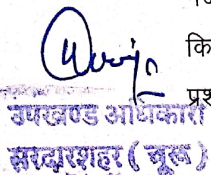 कि
प्रश
उपखण्ड अधिकारी
सरदारशहर ( चूरू )